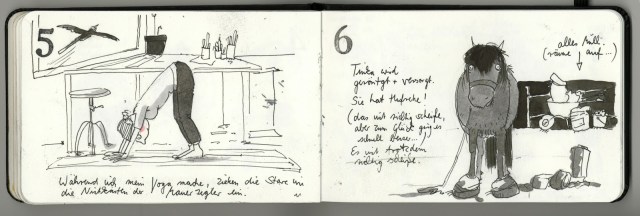 5
Während ich mein Yoga mache, ziehen die Stare in
die Nistkästen der Mauersegler ein.
6
alles Müll.
(räume auf...)
Tinka wird
gereinigt + versorgt.
Sie hat Hufrehe!
(das ist richtig scheiße,
aber zum Glück ging es
schnell besser...)
Es ist trotzdem
richtig scheiße.